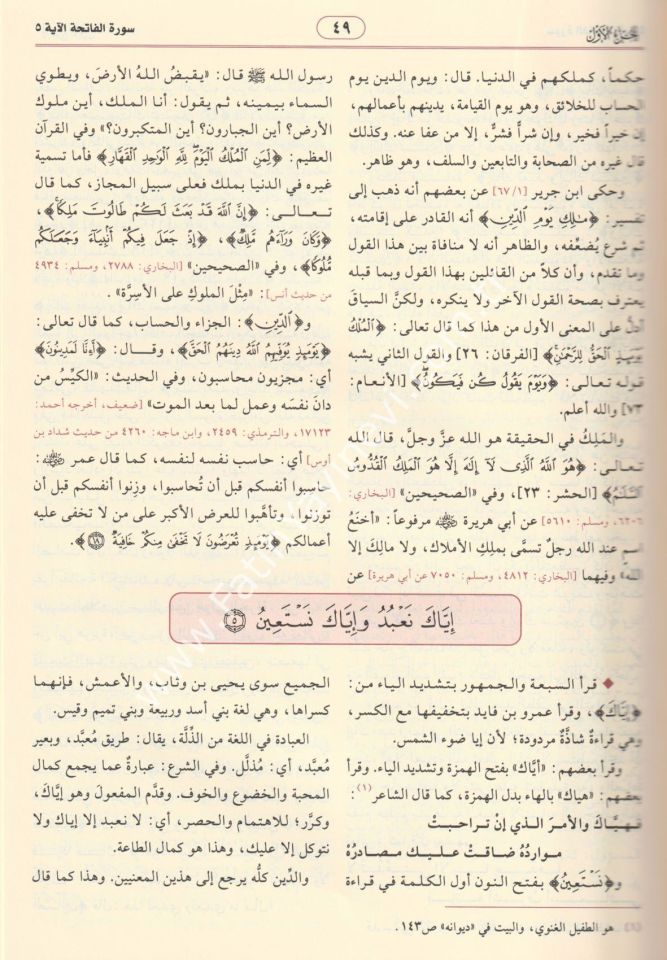 الجزء الأول
٤٩
سورة الفاتحة الآية ٥
حكماً، كملكهم في الدنيا. قال: ويوم الدين يوم
الحساب للخلائق، وهو يوم القيامة، يدينهم بأعمالهم،
إن خيراً فخير، وإن شراً فشرٌّ، إلا من عفا عنه. وكذلك
قال غيره من الصحابة والتابعين والسلف، وهو ظاهر.
وحكى ابن جرير [٦٧/١] عن بعضهم أنه ذهب إلى
تفسير: ﴿مَٰلِكِ يَوْمِ ٱلدِّينِ﴾ أنه القادر على إقامته،
ثم شرع يُضعِّفه، والظاهر أنه لا منافاة بين هذا القول
وما تقدم، وأن كلاً من القائلين بهذا القول وبما قبله
يعترف بصحة القول الآخر ولا ينكره، ولكنَّ السياقَ
أدلُّ على المعنى الأول من هذا كما قال تعالى: ﴿ٱلْمُلْكُ
يَوْمَئِذٍ ٱلْحَقُّ لِلرَّحْمَٰنِ﴾ [الفرقان: ٢٦] والقول الثاني يشبه
قوله تعالى: ﴿وَيَوْمَ يَقُولُ كُن فَيَكُونُ﴾ [الأنعام:
٧٣] والله أعلم.
والمَلِكُ في الحقيقة هو الله عزَّ وجلَّ، قال الله
تعالى: ﴿هُوَ ٱللَّهُ ٱلَّذِى لَآ إِلَٰهَ إِلَّا هُوَ ٱلْمَلِكُ ٱلْقُدُّوسُ
ٱلسَّلَٰمُ﴾ [الحشر: ٢٣]، وفي «الصحيحين» [البخاري:
٦٢٠٦، ومسلم: ٥٦١٠] عن أبي هريرة ﷺ مرفوعاً: «أخنَعُ
اسمٍ عند الله رجلٌ تسمَّى بملِكِ الأملاك، ولا مالكَ إلا
الله» وفيهما [البخاري: ٤٨١٢، ومسلم: ٧٠٥٠ عن أبي هريرة] عن
رسول الله ﷺ قال: «يقبضُ اللهُ الأرضَ، ويطوي
السماء بيمينه، ثم يقول: أنا الملك، أين ملوك
الأرض؟ أين الجبارون؟ أين المتكبرون؟» وفي القرآن
العظيم: ﴿لِّمَنِ ٱلْمُلْكُ ٱلْيَوْمَ لِلَّهِ ٱلْوَٰحِدِ ٱلْقَهَّارِ﴾ فأما تسمية
غيره في الدنيا بملك فعلى سبيل المجاز، كما قال
تعالى: ﴿إِنَّ ٱللَّهَ قَدْ بَعَثَ لَكُمْ طَالُوتَ مَلِكًا﴾،
﴿وَكَانَ وَرَآءَهُم مَّلِكٌ﴾، ﴿إِذْ جَعَلَ فِيكُمْ أَنۢبِيَآءَ وَجَعَلَكُم
مُّلُوكًا﴾، وفي «الصحيحين» [البخاري: ٢٧٨٨، ومسلم: ٤٩٣٤
من حديث أنس]: «مِثْلَ الملوكِ على الأسِرَّة».
و﴿ٱلدِّينِ﴾: الجزاء والحساب، كما قال تعالى:
﴿يَوْمَئِذٍ يُوَفِّيهِمُ ٱللَّهُ دِينَهُمُ ٱلْحَقَّ﴾، وقال: ﴿أَءِنَّا لَمَدِينُونَ﴾
أي: مجزيون محاسبون، وفي الحديث: «الكيِّسُ من
دانَ نفسَه وعمل لما بعد الموت» [ضعيف، أخرجه أحمد:
١٧١٢٣، والترمذي: ٢٤٥٩، وابن ماجه: ٤٢٦٠ من حديث شداد بن
أوس] أي: حاسب نفسه لنفسه، كما قال عمر ﷺ:
حاسبوا أنفسكم قبل أن تُحاسبوا، وزِنوا أنفسكم قبل أن
توزنوا، وتأهَّبوا للعرض الأكبر على من لا تخفى عليه
أعمالكم ﴿يَوْمَئِذٍ تُعْرَضُونَ لَا تَخْفَىٰ مِنكُمْ خَافِيَةٌ ۝١٨﴾.
إِيَّاكَ نَعْبُدُ وَإِيَّاكَ نَسْتَعِينُ ۝٥
◆ قرأ السبعة والجمهور بتشديد الياء من:
﴿إِيَّاكَ﴾، وقرأ عمرو بن فايد بتخفيفها مع الكسر،
وهي قراءةٌ شاذَّةٌ مردودة؛ لأن إيا ضوء الشمس.
وقرأ بعضهم: «أيَّاك» بفتح الهمزة وتشديد الياء. وقرأ
بعضهم: «هياك» بالهاء بدل الهمزة، كما قال الشاعر(١):
فهِيَّاكَ والأمرَ الذي إنْ تراحبتْ
مواردُهُ ضاقتْ عليكَ مصادرُهُ
و﴿نَسْتَعِينُ﴾ بفتح النون أول الكلمة في قراءة
الجميع سوى يحيى بن وثاب، والأعمش، فإنهما
كسراها، وهي لغة بني أسد وربيعة وبني تميم وقيس.
العبادة في اللغة من الذِّلَّة، يقال: طريق مُعبَّد، وبعير
مُعبَّد، أي: مُذلَّل. وفي الشرع: عبارةٌ عما يجمع كمال
المحبة والخضوع والخوف. وقدَّم المفعول وهو إياكَ،
وكرَّر؛ للاهتمام والحصر، أي: لا نعبد إلا إياك ولا
نتوكل إلا عليك، وهذا هو كمال الطاعة.
والدِّين كلُّه يرجع إلى هذين المعنيين. وهذا كما قال
هو الطفيل الغنوي، والبيت في «ديوانه» ص١٤٣.